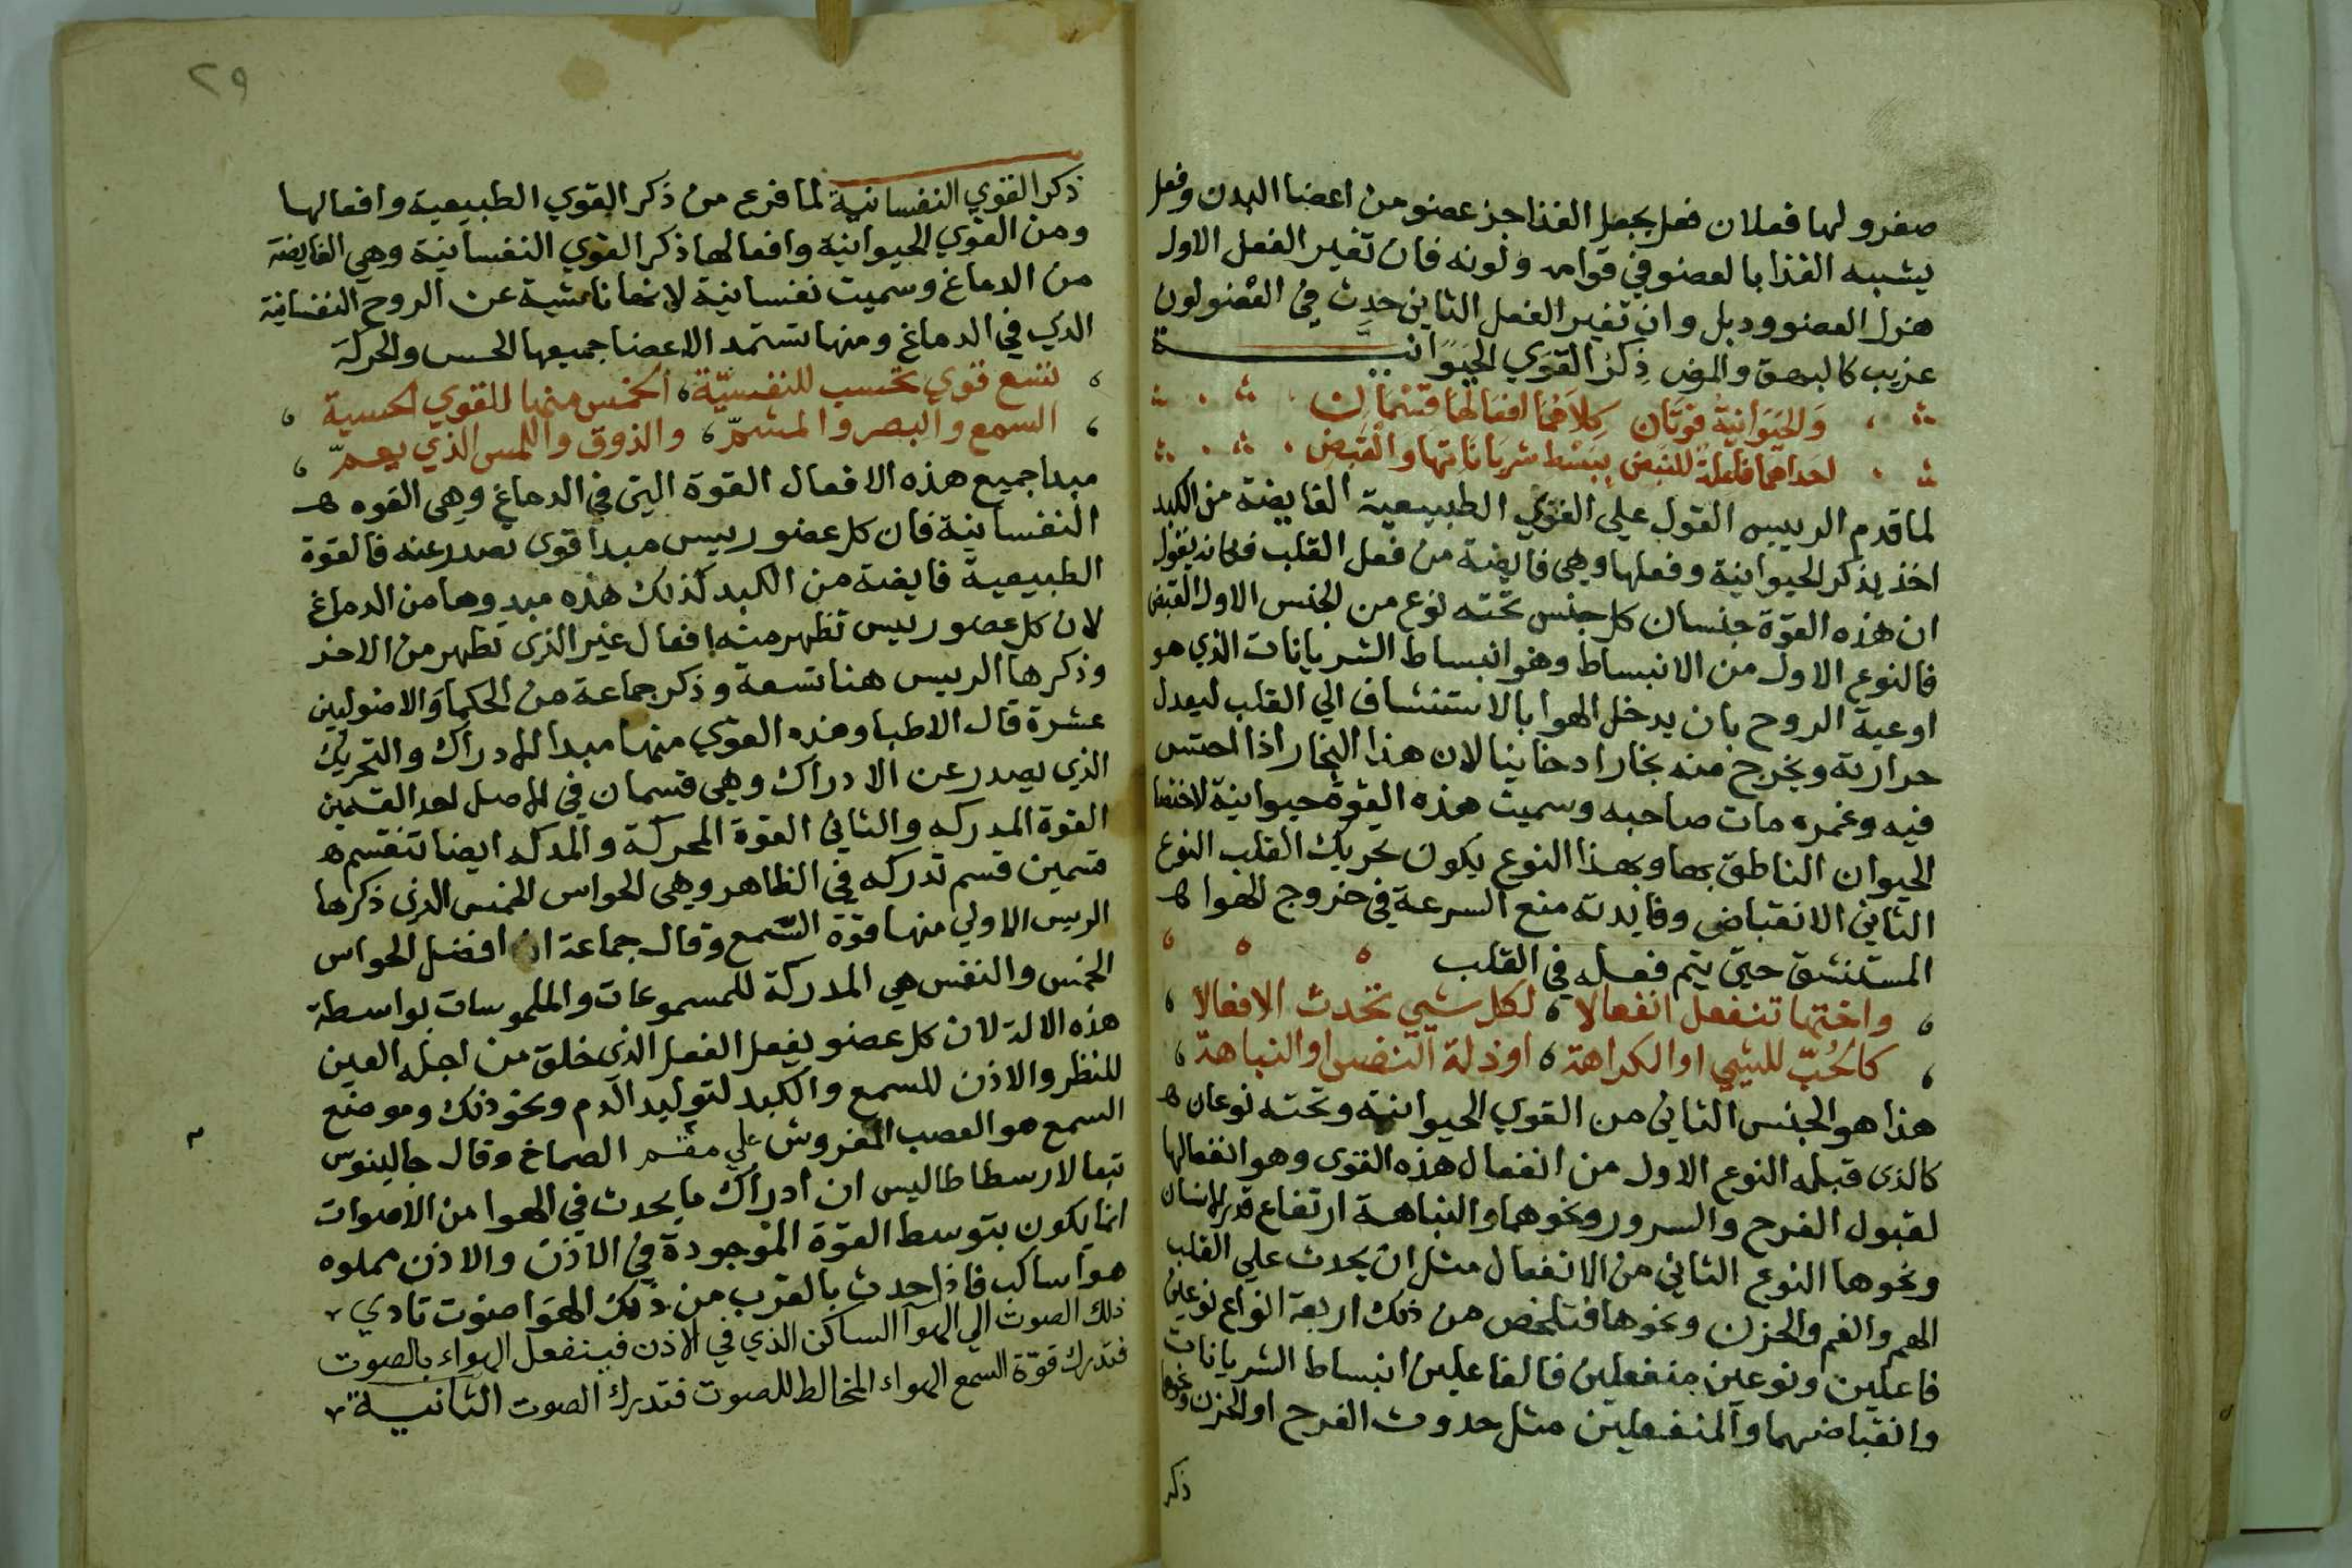 صفرو لها فعلان فعل يجعل الغذا جز عضو من اعضا البدن وفعل
يشبه الغذا بالعضو في قوامه ولونه فان تغير الفعل الاول
هزل العضو ودبل وان تغير الفعل الثاني حدث في العضو لون
غريب كالبهق والبرص ذِكرُ القوَي الحَيَوَانيَّة
وَالحَيَوانيةُ قوتَان كِلاَهُمَا افعَالهَا قسْمَان
احداهما فاعلة للنبض ببَسْط شريَانَاتها والقَبض
لما قدم الرييس القول علي القوي الطبيعية الفايضة من الكبد
اخذ يذكر الحيوانية وفعلها وهي فايضة من فعل القلب فكانه يقول
ان هذه القوة جنسان كل جنس تحته نوع من الجنس الاول القبض
فالنوع الاول من الانبساط وهو انبساط الشريانات الذي هو
اوعية الروح بان يدخل الهوا بالاستنشاف الي القلب ليعدل
حرارته ويخرج منه بخارا دخانيا لان هذا البخار اذا احتبس
فيه وغمره مات صاحبه وسميت هذه القوة حيوانية لاختصا
الحيوان الناطق بها وبهذا النوع يكون تحريك القلب النوع
الثاني الانقباض وفايدته منع السرعة في خروج الهوا
المستنشق حتي يتم فعله في القلب
واختها تنفعل انفعالا لكل شيي تحدث الافعالا
كالحُبّ للشيي او الكراهة او ذلة النفس او النباهة
هذا هو الجنس الثاني من القوي الحيوانية وتحته نوعان
كالذي قبله النوع الاول من انفعال هذه القوي وهو انفعالها
لقبول الفرح والسرور ونحوهما والنباهة ارتفاع قدر الانسان
ونحوها النوع الثاني من الانفعال مثل ان يحدث علي القلب
الهم والغم والحزن ونحوها فتلخص من ذلك اربعة انواع نوعين
فاعلين ونوعين منفعلين فالفاعلين انبساط الشريانات
وانقباضهما والمنفعلين مثل حدوث الفرح او الحزن ونحوها
ذكر
٢٩
ذكر القوي النفسانية لما فرغ من ذكر القوي الطبيعية وافعالها
ومن القوي الحيوانية وافعالها ذكر القوي النفسانية وهي الفايضة
من الدماغ وسميت نفسانية لانها ناشية عن الروح النفسانية
الذي في الدماغ ومنها تستمد الاعضا جميعها الحس والحركة
تسع قوي تحسب للنفسيّة الخمس منها للقوي الحسية
السمع والبصر والمشمّ والذوق واللمس الذي يعمّ
مبدا جميع هذه الافعال القوة التي في الدماغ وهي القوه
النفسانية فان كل عضو رييس مبدا قوي تصدر عنه فالقوة
الطبيعية فايضة من الكبد كذلك هذه مبدوها من الدماغ
لان كل عضو رييس تظهر منه افعال غير الذي تظهر من الاخر
وذكرها الرييس هنا تسعة وذكر جماعة من الحكما والاصوليين
عشرة قال الاطبا وهذه القوي منها مبدا الادراك والتحريك
الذي يصدر عن الادراك وهي قسمان في الاصل احد القسمين
القوة المدركه والثاني القوة المحركة والمدركه ايضا تنقسم
قسمين قسم تدركه في الظاهر وهي الحواس الخمس الذي ذكرها
الريس الاولي منها قوة السمع وقال جماعة ان افضل الحواس
الخمس والنفس هي المدركة للمسموعات والملموسات بواسطة
هذه الالة لان كل عضو يفعل الفعل الذي خلق من اجله العين
للنظر والاذن للسمع والكبد لتوليد الدم ونحو ذلك وموضع
السمع هو العصب المفروش علي مقسم الصماخ وقال جالينوس
تبعا لارسطاطاليس ان ادراك ما يحدث في الهوا من الاصوات
انما يكون بتوسط القوة الموجودة في الاذن والاذن مملوه
هوا ساكب فاذا حدث بالقرب من ذلك الهوا صوت تادي
ذلك الصوت الي الهوا الساكن الذي في الاذن فينفعل الهواء بالصوت
فتدرك قوّة السمع الهواء المخالط للصوت فتدرك الصوت الثانية